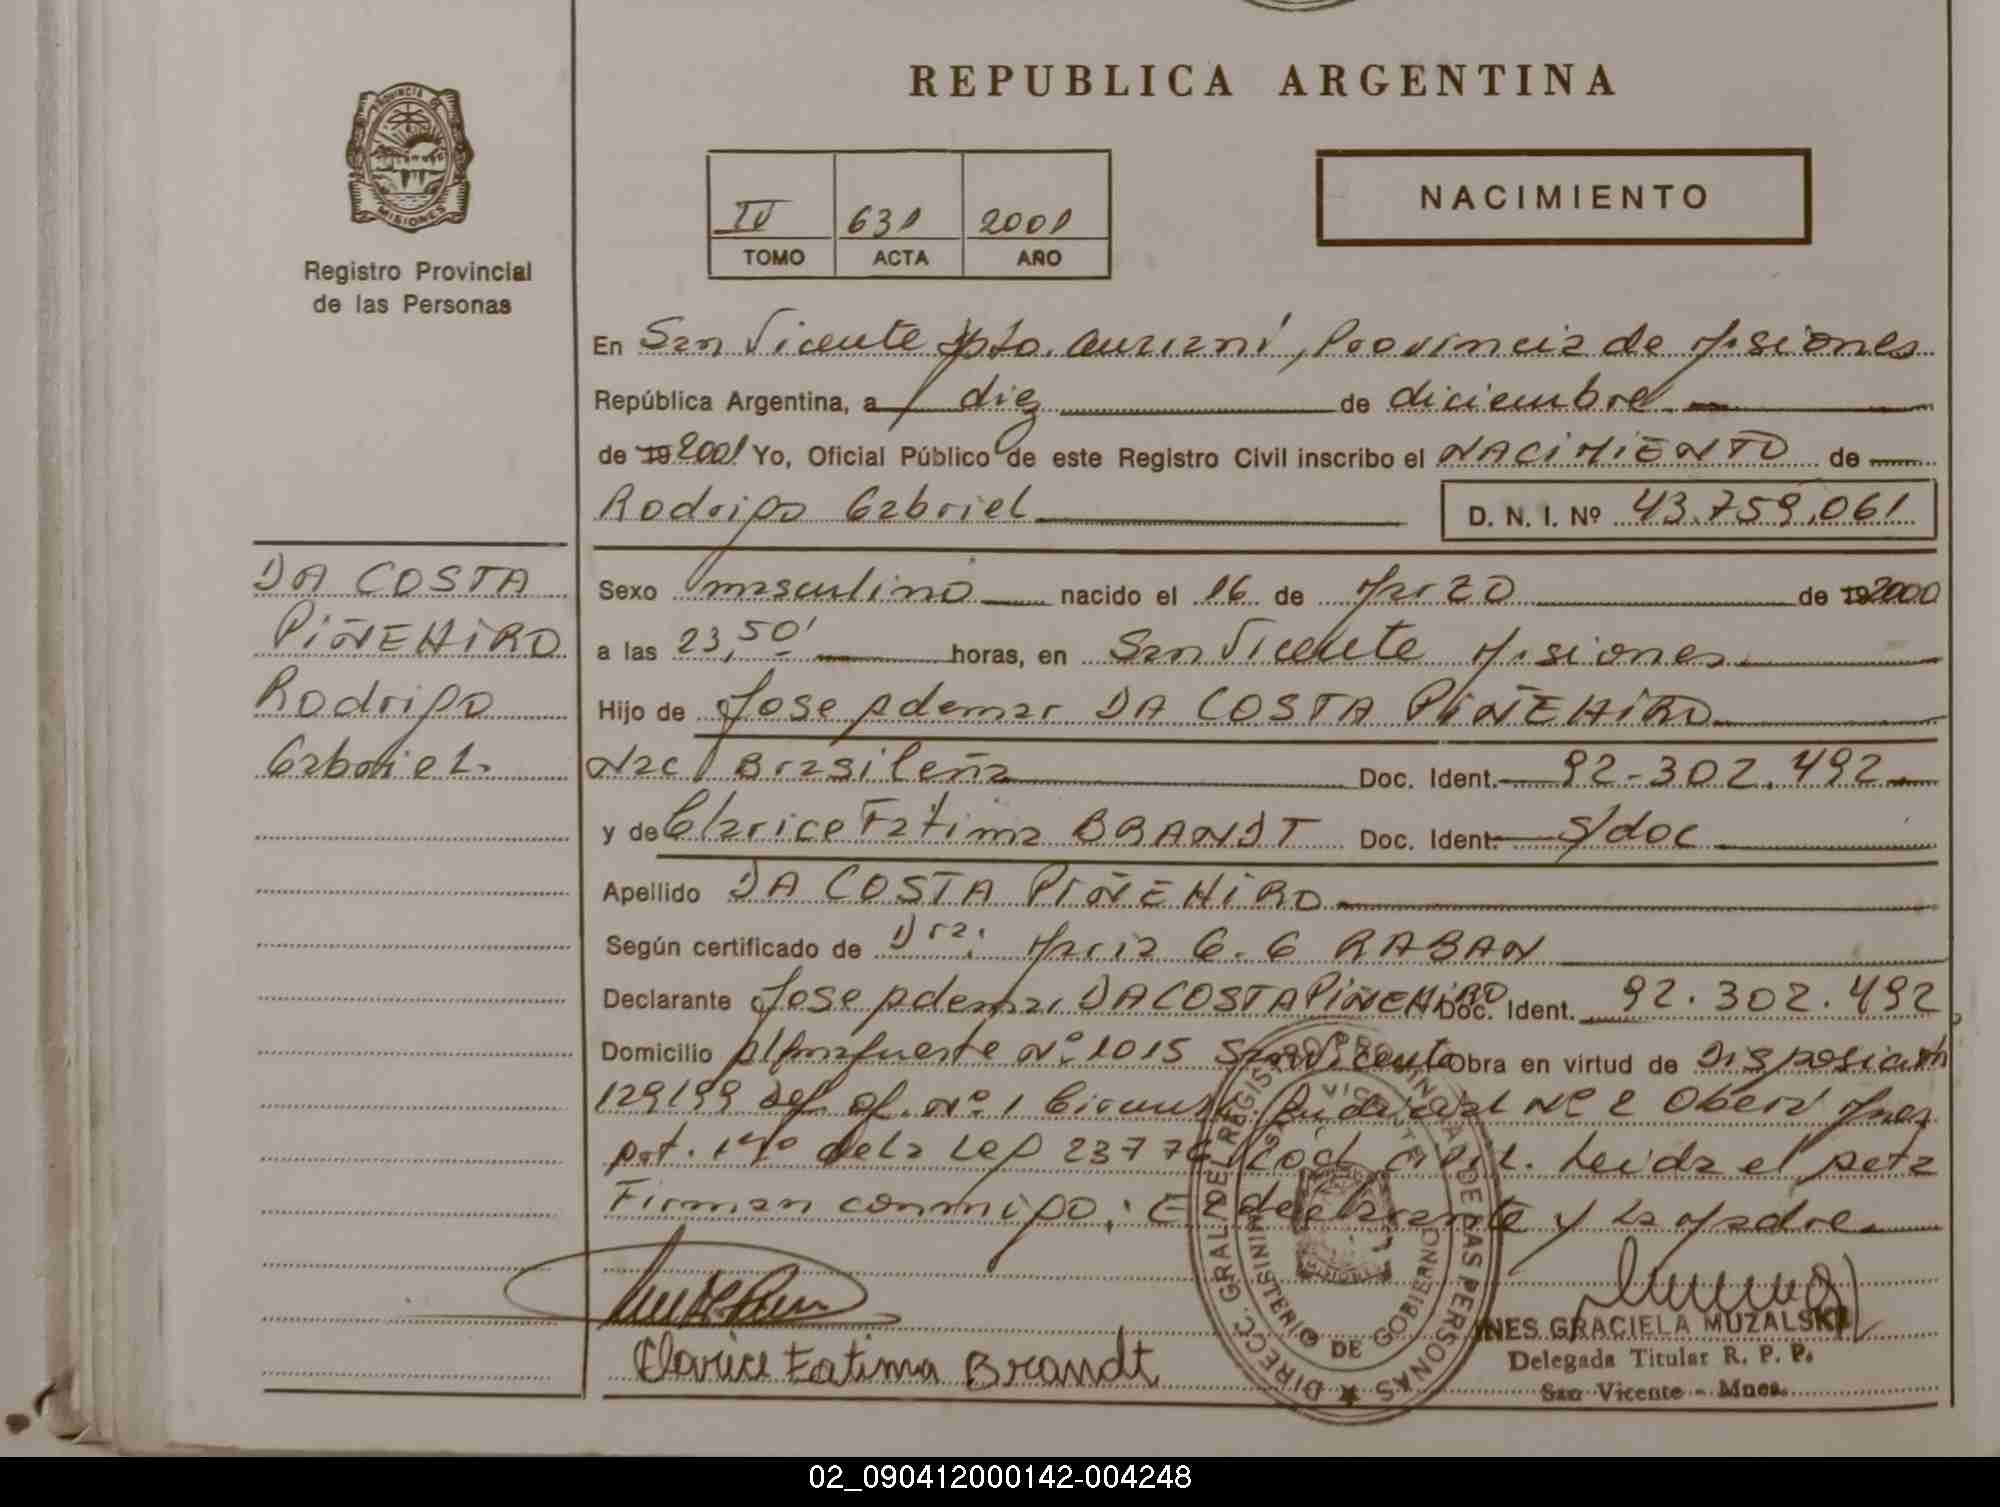 REPUBLICA ARGENTINA
PROVINCIA DE
MISIONES
Registro Provincial
de las Personas
IV 631 2001
TOMO ACTA AÑO
NACIMIENTO
En San Vicente Dpto. Guaraní, Provincia de Misiones
República Argentina, a diez de diciembre
de 19 2001 Yo, Oficial Público de este Registro Civil inscribo el NACIMIENTO de
Rodrigo Gabriel D. N. I. Nº 43.759.061
DA COSTA
PIÑEHIRO
Rodrigo
Gabriel.
Sexo masculino nacido el 16 de Marzo de 19 2000
a las 23,50' horas, en San Vicente Misiones
Hijo de Jose Ademar DA COSTA PIÑEHIRO
Nac Brasileña Doc. Ident. 92-302.492
y de Clarice Fatima BRANDT Doc. Ident. S/doc
Apellido DA COSTA PIÑEHIRO
Según certificado de Dra: Maria G. G RABAN
Declarante Jose Ademar DA COSTA PIÑEHIRO Doc. Ident. 92.302.492
Domicilio Almafuerte Nº 1015 San Vicente Obra en virtud de Disposición
129/99 Def. of. Nº 1 Circunsc. Judicial Nº 2 Oberá Mnes
Art. de la Ley Cód. Civil. Leida el Acta
Firman conmigo: El declarante y La Madre
Clarice Fatima Brandt
INES GRACIELA MUZALSKI
Delegada Titular R. P. P.
San Vicente - Mnes.
DIRECC. GRAL. DEL REGISTRO PROVINCIAL DE LAS PERSONAS
MINISTERIO DE GOBIERNO
SAN VICENTE
02_090412000142-004248